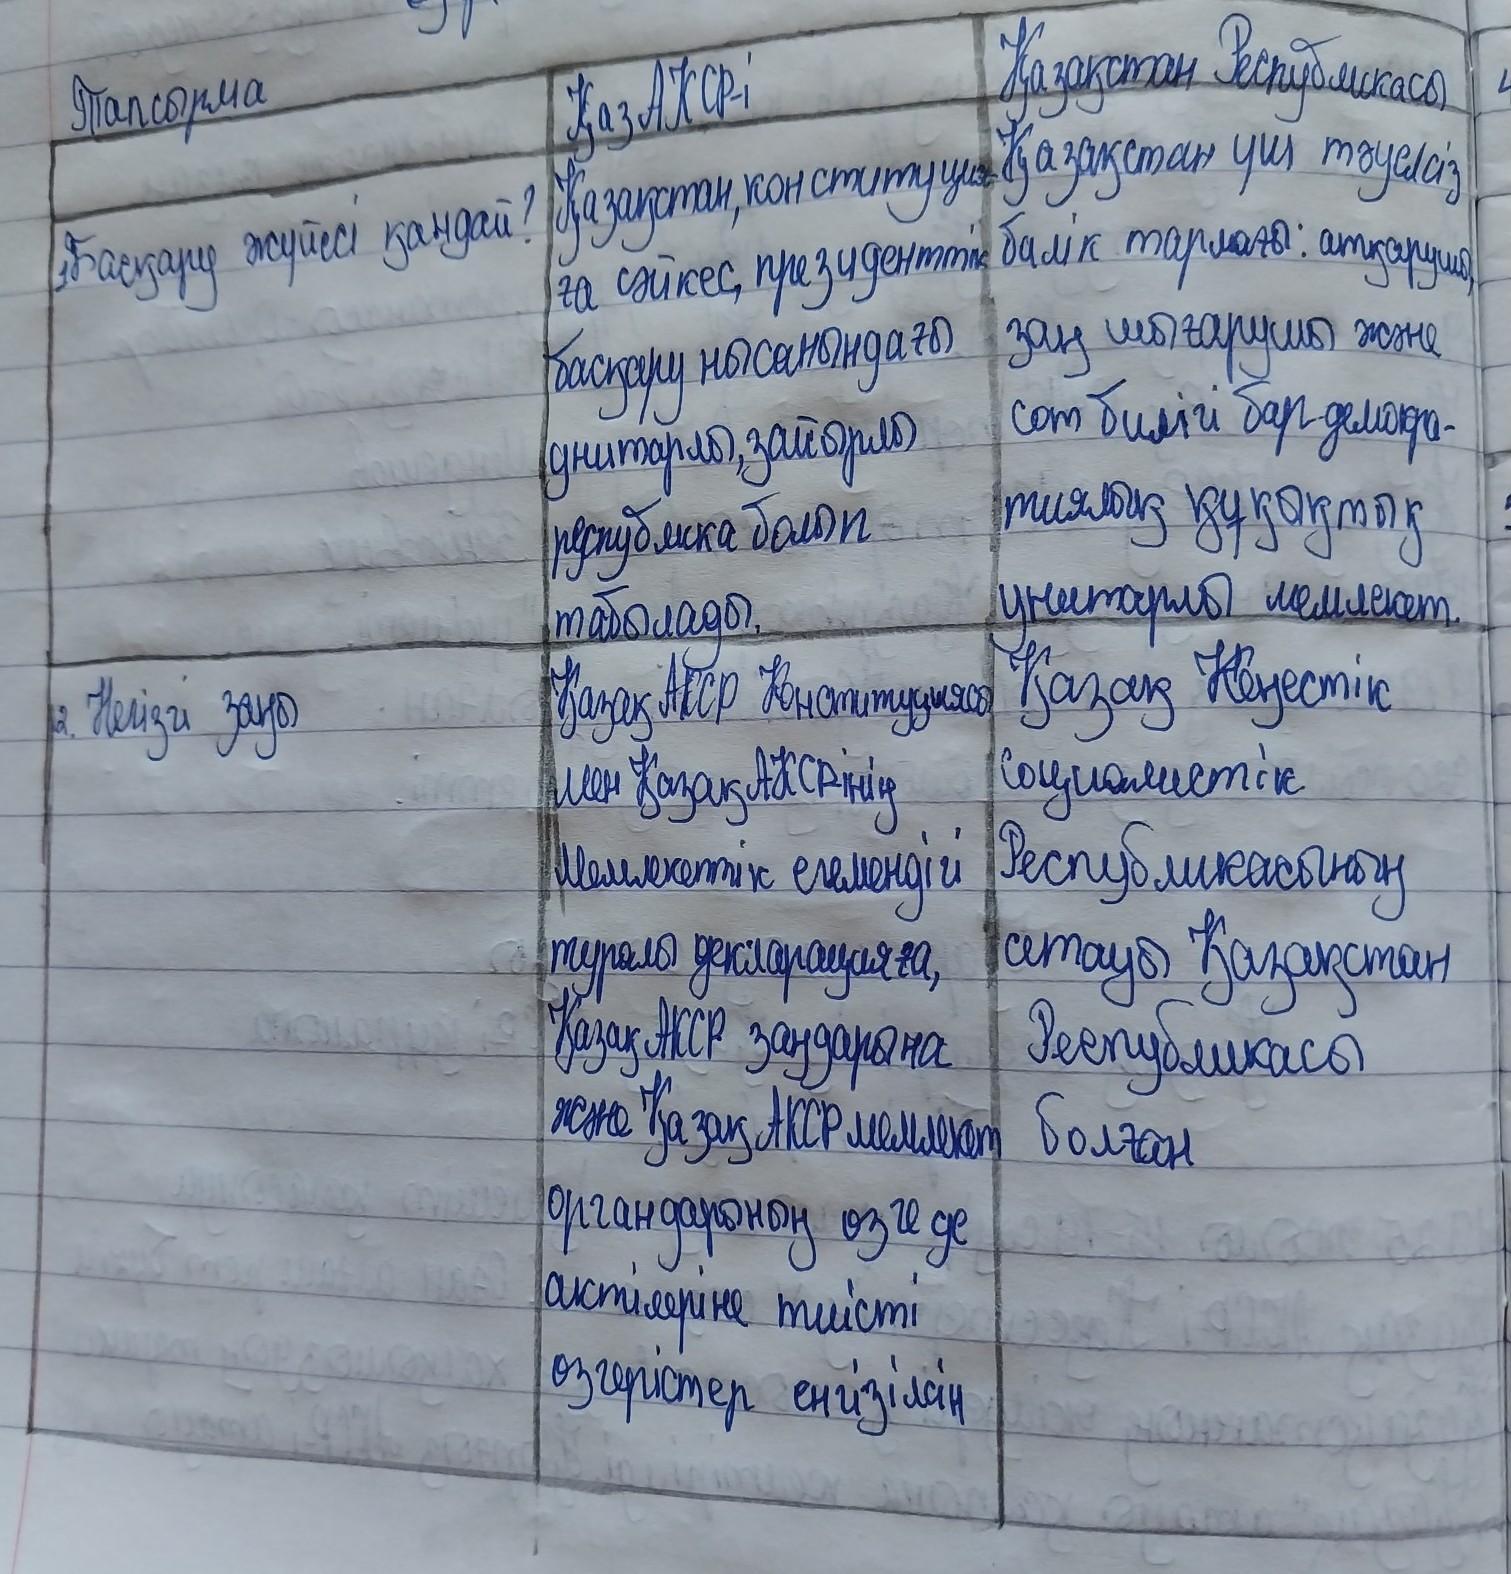 Тапсырма
ҚазАКСР-і
Қазақстан Республикасы
1. Басқару жүйесі қандай?
Қазақстан, конституция-
ға сәйкес, президенттік
басқару нысанындағы
унитарлы, зайырлы
республика болып
табылады.
Қазақстан үш тәуелсіз
билік тармағы: атқарушы,
заң шығарушы және
сот билігі бар-демокра-
тиялық құқықтық
унитарлы мемлекет.
2. Негізгі заңы
Қазақ АКСР Конституциясы
мен Қазақ АКСР-інің
Мемлекеттік егемендігі
туралы декларацияға,
Қазақ АКСР заңдарына
және Қазақ АКСР мемлекет
органдарының өзге де
актілеріне тиісті
өзгерістер енгізілсін
Қазақ Кеңестік
социалистік
Республикасының
атауы Қазақстан
Республикасы
болған